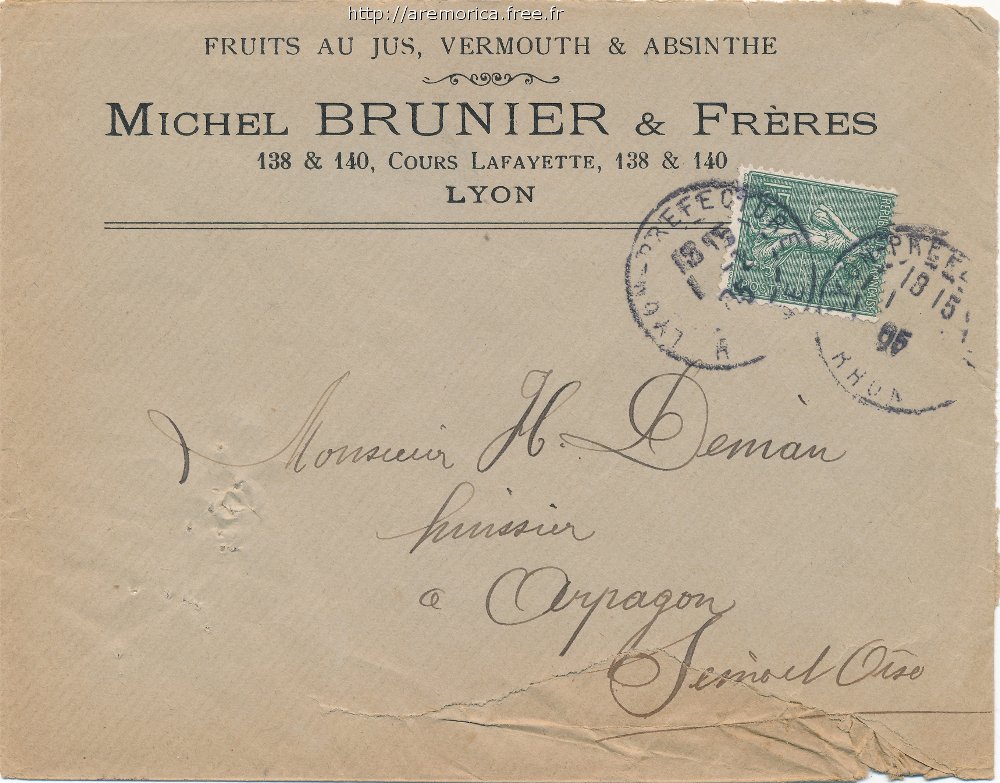 http://aremorica.free.fr
FRUITS AU JUS, VERMOUTH & ABSINTHE
MICHEL BRUNIER & FRÈRES
138 & 140, COURS LAFAYETTE, 138 & 140
LYON
LYON-PREFECTURE
18 15
05
PREFE
18 15
05
RHON
Monsieur H. Deman
huissier
a Arpagon
Seine et Oise